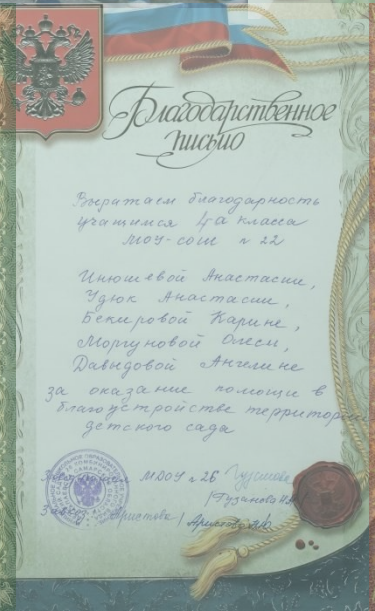 Благодарственное
письмо
Выражаем благодарность
учащимся 4а класса
МОУ-СОШ № 22
Инюшевой Анастасии,
Удюк Анастасии,
Бекировой Карине,
Моргуновой Олеси,
Давыдовой Ангелине
за оказание помощи в
благоустройстве территории
детского сада
МДОУ № 26
Аристова